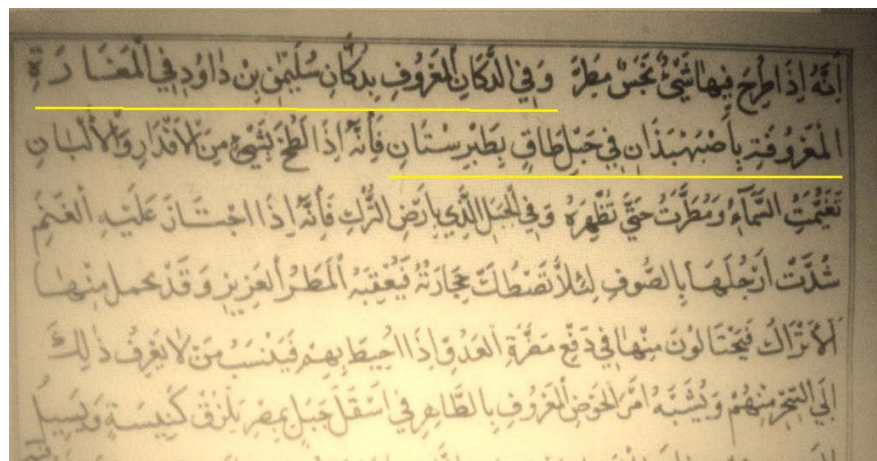 اِنَّهُ اِذَا طُرِحَ فِيهَا شَيْءٌ نَجَسٌ مَطِرَ وَفِي الدُّكَّانِ الْمَعْرُوفِ بِدُكَّانِ سُلَيْمٰنَ بْنِ دَاوُدَ فِي الْمَغَارَةِ
الْمَعْرُوفَةِ بِاَصْبَهْبَذَانِ فِي جَبَلِ طَاقٍ بِطَبَرِسْتَانِ فَاِنَّهُ اِذَا لُطِخَ بِشَيْءٍ مِنَ الْاَقْذَارِ وَالْاَلْبَانِ
تَغَيَّمَتِ السَّمَاءُ وَمَطَرَتْ حَتَّى تُطَهِّرَهُ وَفِي الْجَبَلِ الَّذِي بِاَرْضِ التُّرْكِ فَاِنَّهُ اِذَا اجْتَازَ عَلَيْهِ الْغَنَمُ
شُدَّتْ اَرْجُلُهَا بِالصُّوفِ لِئَلَّا تَصْطَكَّ حِجَارَتُهُ فَيُعْقِبَهُ الْمَطَرُ الْغَزِيرُ وَقَدْ يحمل مِنْهَا
الْاَتْرَاكُ فَيَحْتَالُونَ مِنْهَا فِي دَفْعِ مَضَرَّةِ الْعَدُوِّ اِذَا اُحِيطَ بِهِمْ فَيَنْسُبُ مَنْ لَا يَعْرِفُ ذٰلِكَ
اِلَى السِّحْرِ مِنْهُمْ وَيُشْبِهُ اَمْرَ الْحَوْضِ الْمَعْرُوفِ بِالطَّاهِرِ فِي اَسْفَلِ جَبَلٍ بِمِصْرَ يَلْزَقُ كَنِيسَةٍ وَيَسِيلُ